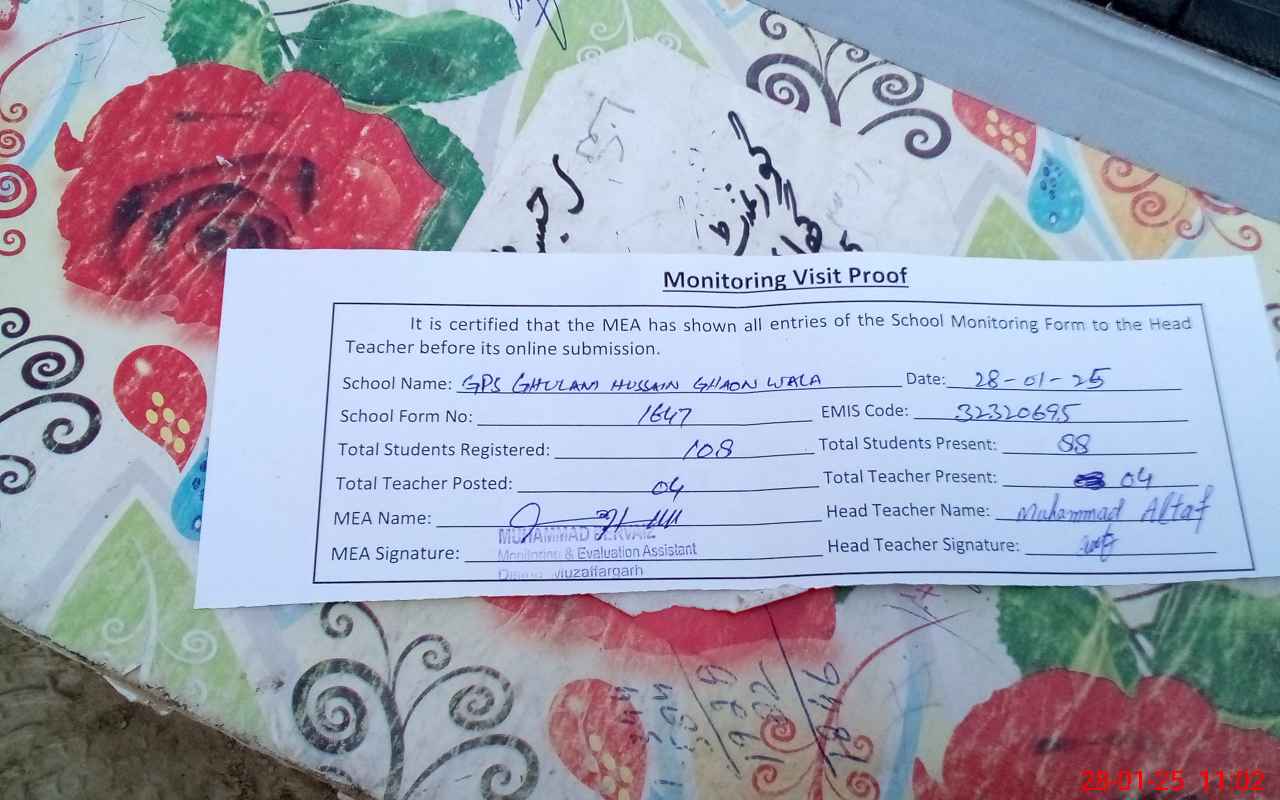 Monitoring Visit Proof
It is certified that the MEA has shown all entries of the School Monitoring Form to the Head
Teacher before its online submission.
School Name: GPS GHULAM HUSSAIN GHAON WALA Date: 28-01-25
School Form No: 1647 EMIS Code: 32320695
Total Students Registered: 108 Total Students Present: 88
Total Teacher Posted: 04 Total Teacher Present: 04
MEA Name: Head Teacher Name: Muhammad Altaf
MUHAMMAD PERVAIZ
MEA Signature: Monitoring & Evaluation Assistant Head Teacher Signature:
Muzaffargarh
1846
28-01-25 11:02